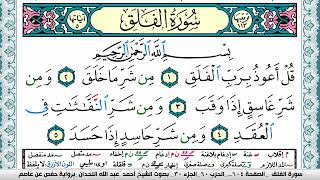 سُورَةُ الْفَلَقِ
بِسْمِ اللَّهِ الرَّحْمَٰنِ الرَّحِيمِ
قُلْ أَعُوذُ بِرَبِّ الْفَلَقِ ١ مِن شَرِّ مَا خَلَقَ ٢ وَمِن
شَرِّ غَاسِقٍ إِذَا وَقَبَ ٣ وَمِن شَرِّ النَّفَّٰثَٰتِ فِي
الْعُقَدِ ٤ وَمِن شَرِّ حَاسِدٍ إِذَا حَسَدَ ٥
سورة الفلق الصفحة ٦٠٤ الحزب ٦٠ الجزء ٣٠ بصوت الشيخ أحمد عبد الله اللحدان برواية حفص عن عاصم